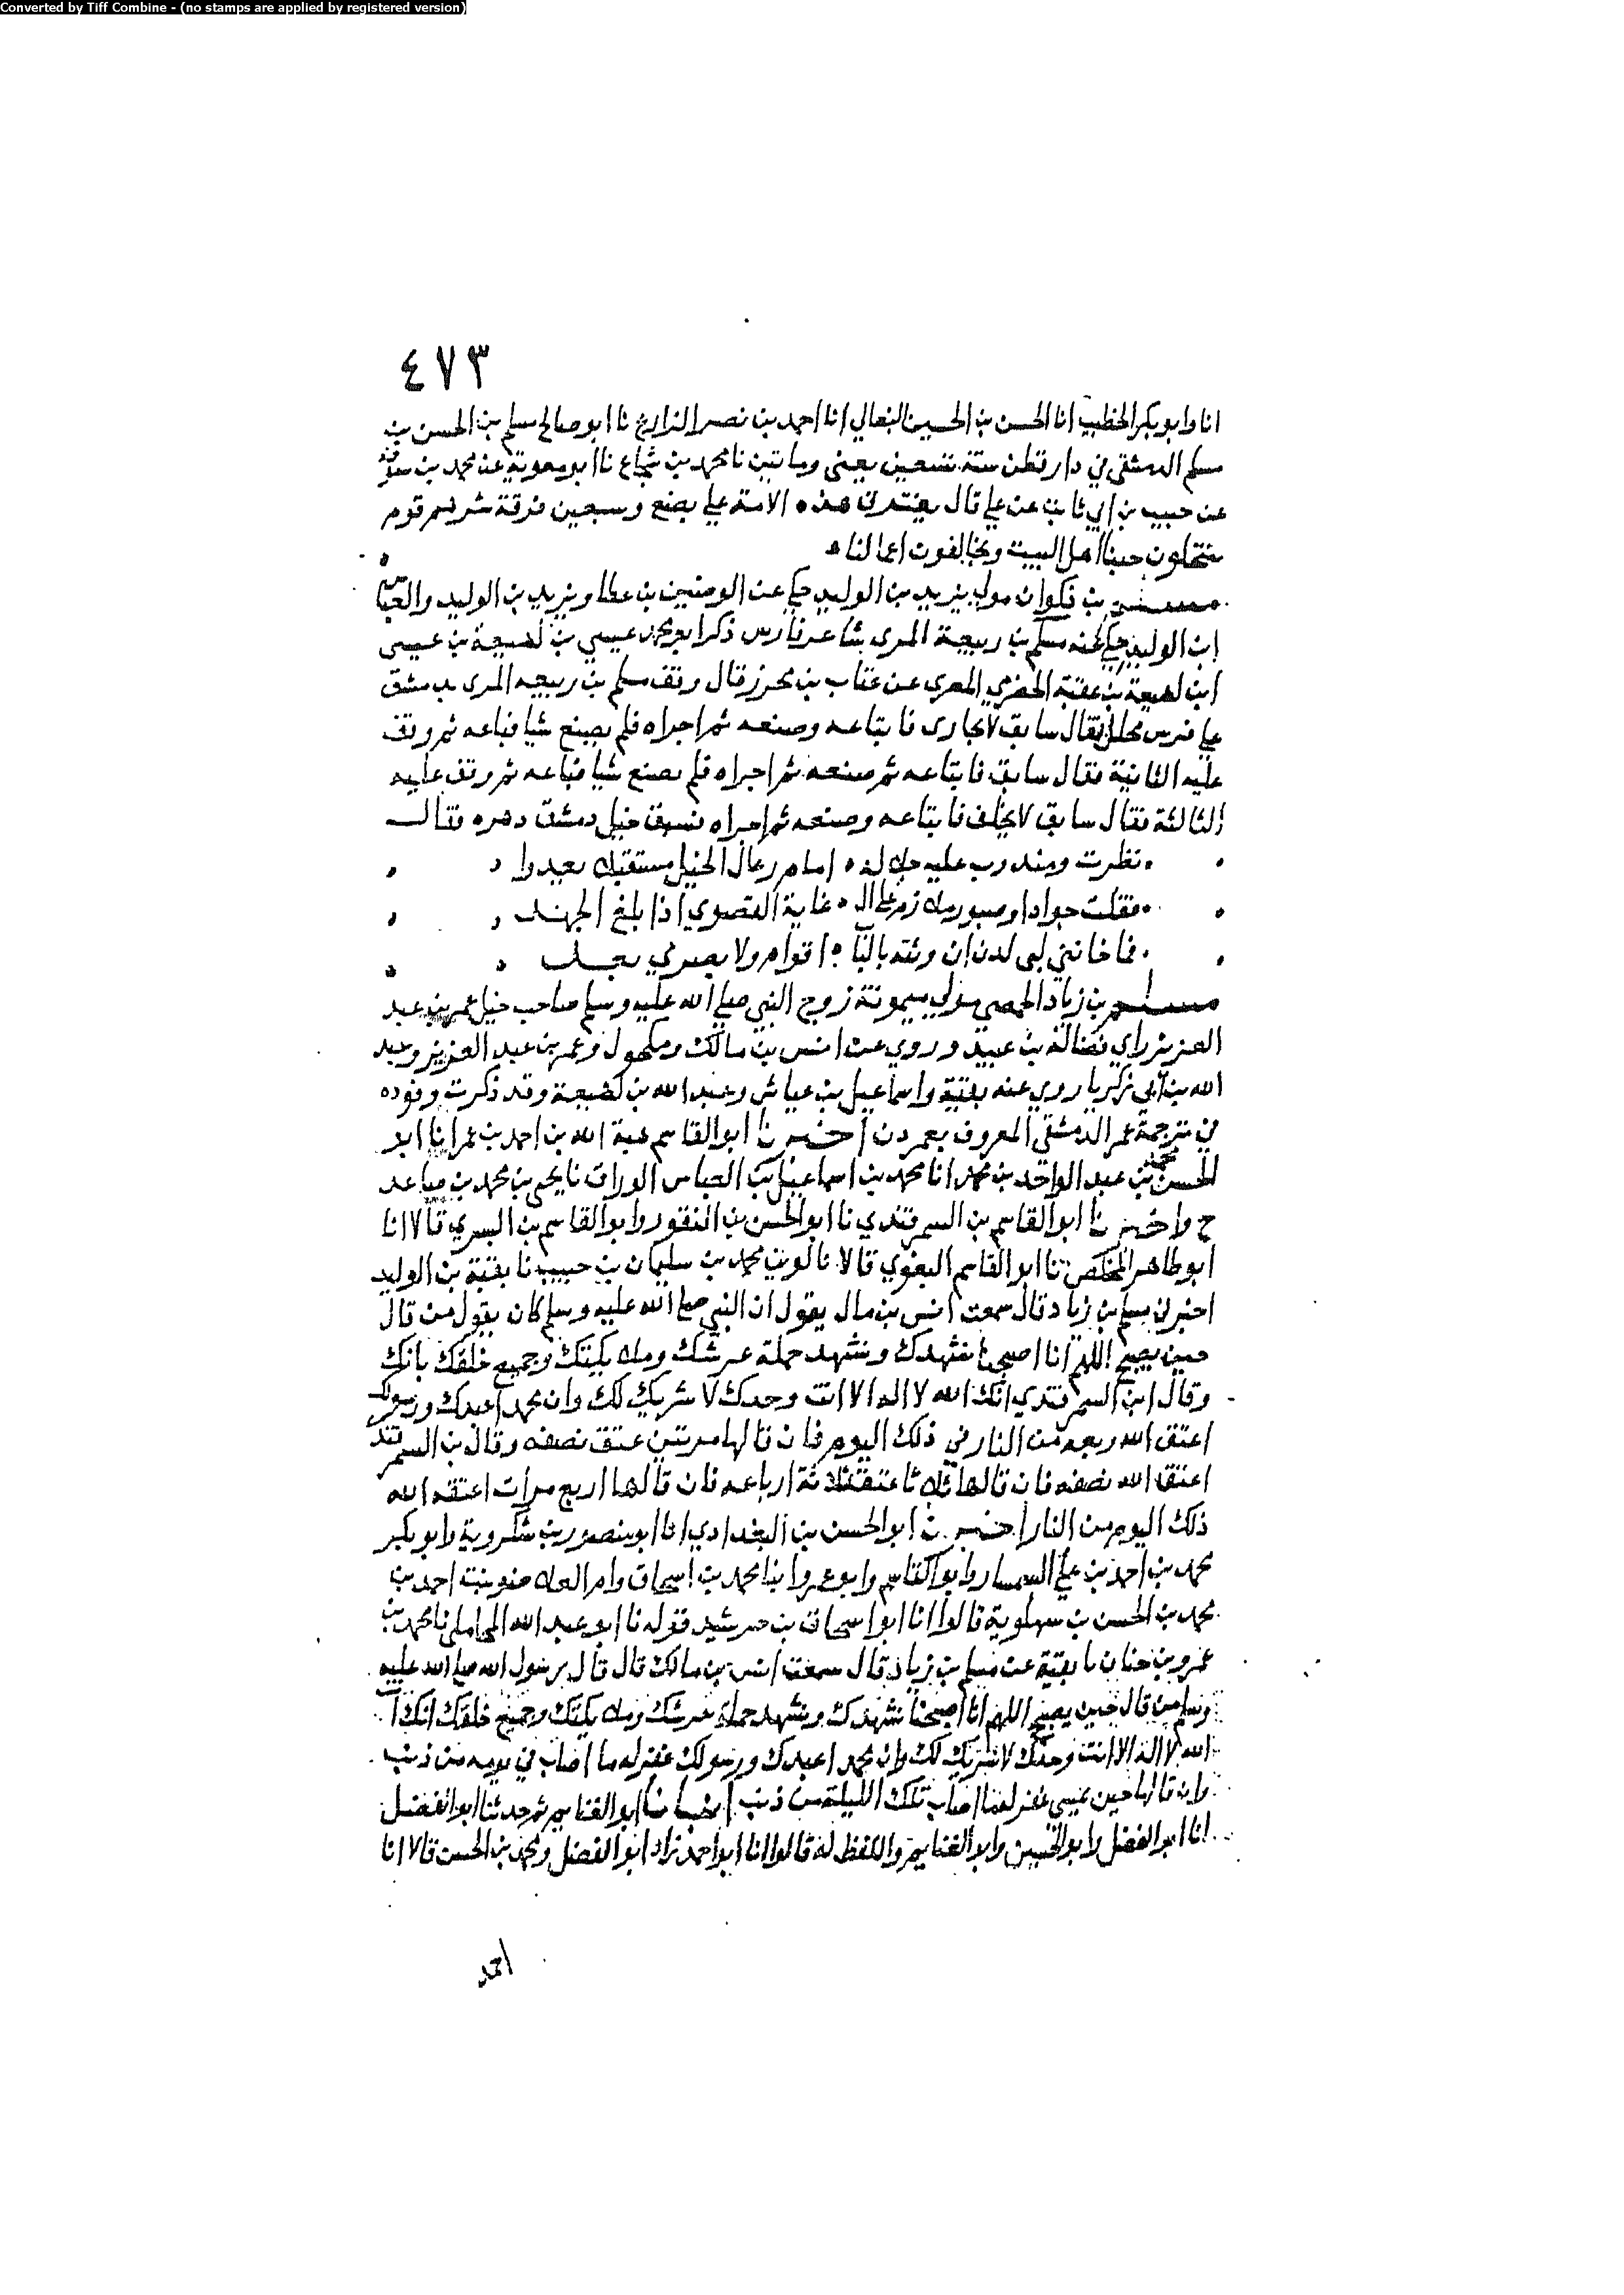 Converted by Tiff Combine - (no stamps are applied by registered version)
٤٧٣
انا وابو بكر الخطيب انا الحسن بن الحسين النعالي انا احمد بن نصر الذارع نا ابو صالح مسلم بن الحسن بن
مسلم الدمشقي في دار قطن ستة تسعين يعني وماتين نا محمد بن شجاع نا ابو معوية عن محمد بن سوقة
عن حبيب بن ابي ثابت عن علي قال يفترق هذه الامة علي بضع وسبعين فرقة شرهم قوم
ينتحلون حبنا اهل البيت ويخالفون اعمالنا ه
مسلم بن ذكوان مولي يزيد بن الوليد حكي عن الوضين بن عطا ويزيد بن الوليد والعباس
ابن الوليد حكي عنه مسلم بن ربيعة المري شاعر فارس ذكر ابو محمد عيسي بن لهيعة بن عيسى
ابن لهيعة بن عقبة الحضرمي المصري عن عتاب بن محرز قال وقف مسلم بن ربيعه المري بدمشق
علي فرس فقال سابق لا يجارى فابتاعه وصنعه ثم اجراه فلم يصنع شيا فباعه ثم وقف
عليه الثانية فقال سابق فابتاعه ثم صنعه ثم اجراه فلم يصنع شيا فباعه ثم وقف عليه
الثالثة فقال سابق لا يخلف فابتاعه وصنعه ثم اجراه فسبق خيل دمشق دهره فقال
نظرت ومندوب عليه امام رعال الخيل مستقبلا يعدوا
فقلت جواد او صبور غاية القصوي اذا بلغ الجهد
فما خانني اقوام ولا بصري بعد
مسلم بن زياد الحمصي مولي ميمونة زوج النبي صلي الله عليه وسلم صاحب خيل عمر بن عبد
العزيز راي فضالة بن عبيد وروي عن انس بن مالك ومكحول وعمر بن عبد العزيز وعبد
الله بن ابي زكريا روي عنه بقية واسماعيل بن عياش وعبد الله بن لهيعة وقد ذكرت وفوده
في ترجمة عمر الدمشقي المعروف بعمر دن اخبرنا ابو القاسم هبة الله بن احمد بن عمر انا ابو
الحسن محمد بن عبد الواحد بن محمد انا محمد بن اسماعيل بن العباس الوراق نا يحي بن محمد بن صاعد
ح واخبرنا ابو القاسم بن السمرقندي نا ابو الحسن بن النقور وابو القاسم بن البسري قالا انا
ابو طاهر المخلص نا ابو القاسم البغوي قالا نا لوين محمد بن سليمان بن حبيب نا بقية بن الوليد
اخبرني مسلم بن زياد قال سمعت انس بن مال يقول ان النبي صلي الله عليه وسلم كان يقول من قال
حين يصبح اللهم انا اصبحنا نشهدك ونشهد حملة عرشك وملايكتك وجميع خلقك بانك
وقال ابن السمرقندي انك الله لا اله الا انت وحدك لا شريك لك وان محمدا عبدك ورسولك
اعتق الله ربعه من النار في ذلك اليوم فان قالها مرتين عتق نصفه وقال بن السمرقند
اعتق الله نصفه فان قالها ثلاثا عتق ثلاثة ارباعه فان قالها اربع مرات اعتقه الله
ذلك اليوم من النار اخبرنا ابو الحسن بن البغدادي انا ابو منصور بن شكروية وابو بكر
محمد بن احمد بن علي السمسار وابو القاسم وابو عمرو ابنا محمد بن اسحاق وام العلا بنت احمد بن
محمد بن الحسن بن سهلوية قالوا انا ابو اسحاق بن خرشيد قوله نا ابو عبد الله المحاملي نا محمد بن
عمرو بن حنان نا بقية عن مسلم بن زياد قال سمعت انس بن مالك قال قال رسول الله صلي الله عليه
وسلم من قال حين يصبح اللهم انا اصبحنا نشهدك ونشهد حملة عرشك وملايكتك وجميع خلقك انك ا
الله لا اله الا انت وحدك لا شريك لك وان محمدا عبدك ورسولك غفر له ما اصاب في يومه من ذنب
وان قالها حين يمسي غفر له ما اصاب تلك الليلة من ذنب انبانا ابو الغنايم ثم حدثنا ابو الفضل
انا ابو الفضل وابو الحسين وابو الغنايم واللفظ له قالوا انا ابو احمد زاد ابو الفضل ومحمد بن الحسن قالا انا
احمد